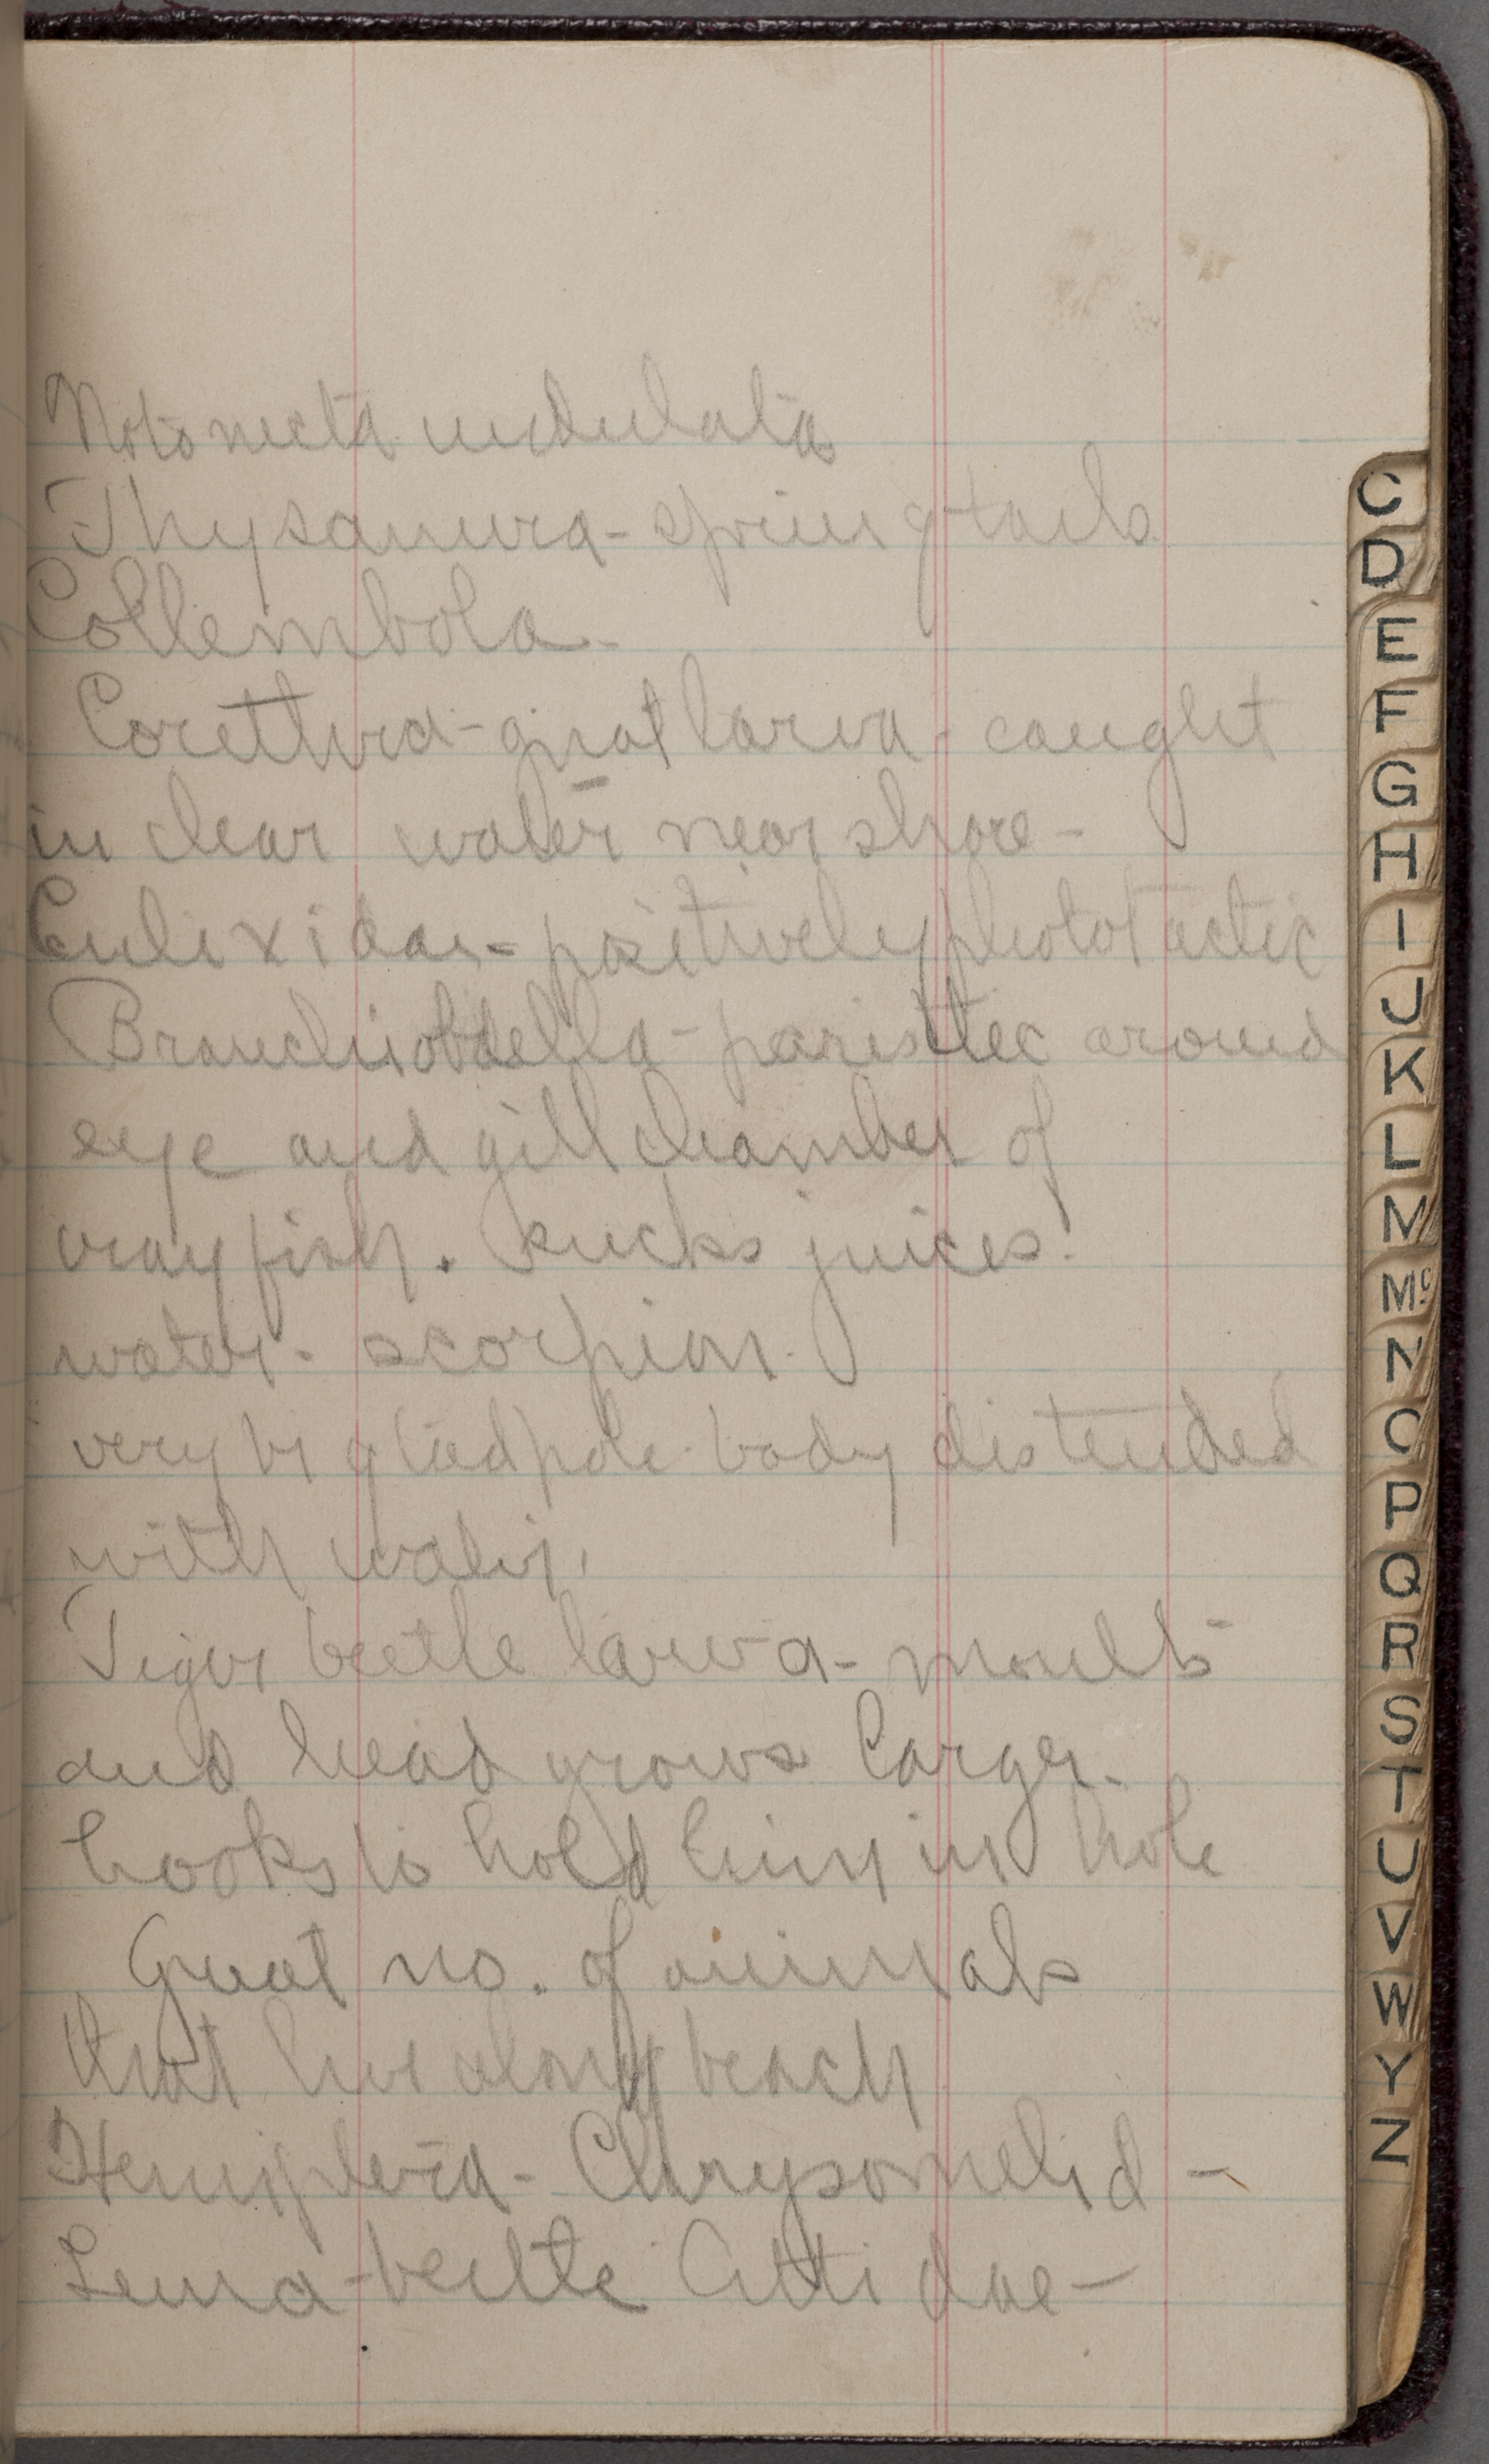 Notonecta undulata
Thysanura - springtails
Collembola -
Corethra - gnat larva - caught
in clear water near shore -
Culixidae - positively phototactic
Branchiobdella - parisitec around
eye and gill chamber of
crayfish. Sucks juices.
water - scorpion.
very big tadpole body distended
with water.
Tiger beetle larva - moults
and head grows larger.
hooks to hold him in hole
Great no. of animals
that live along beach
Hemiptera - Chrysomelid -
Lema - beetle Attidae -
C
D
E
F
G
H
I
J
K
L
M
Mc
N
O
P
Q
R
S
T
U
V
W
Y
Z